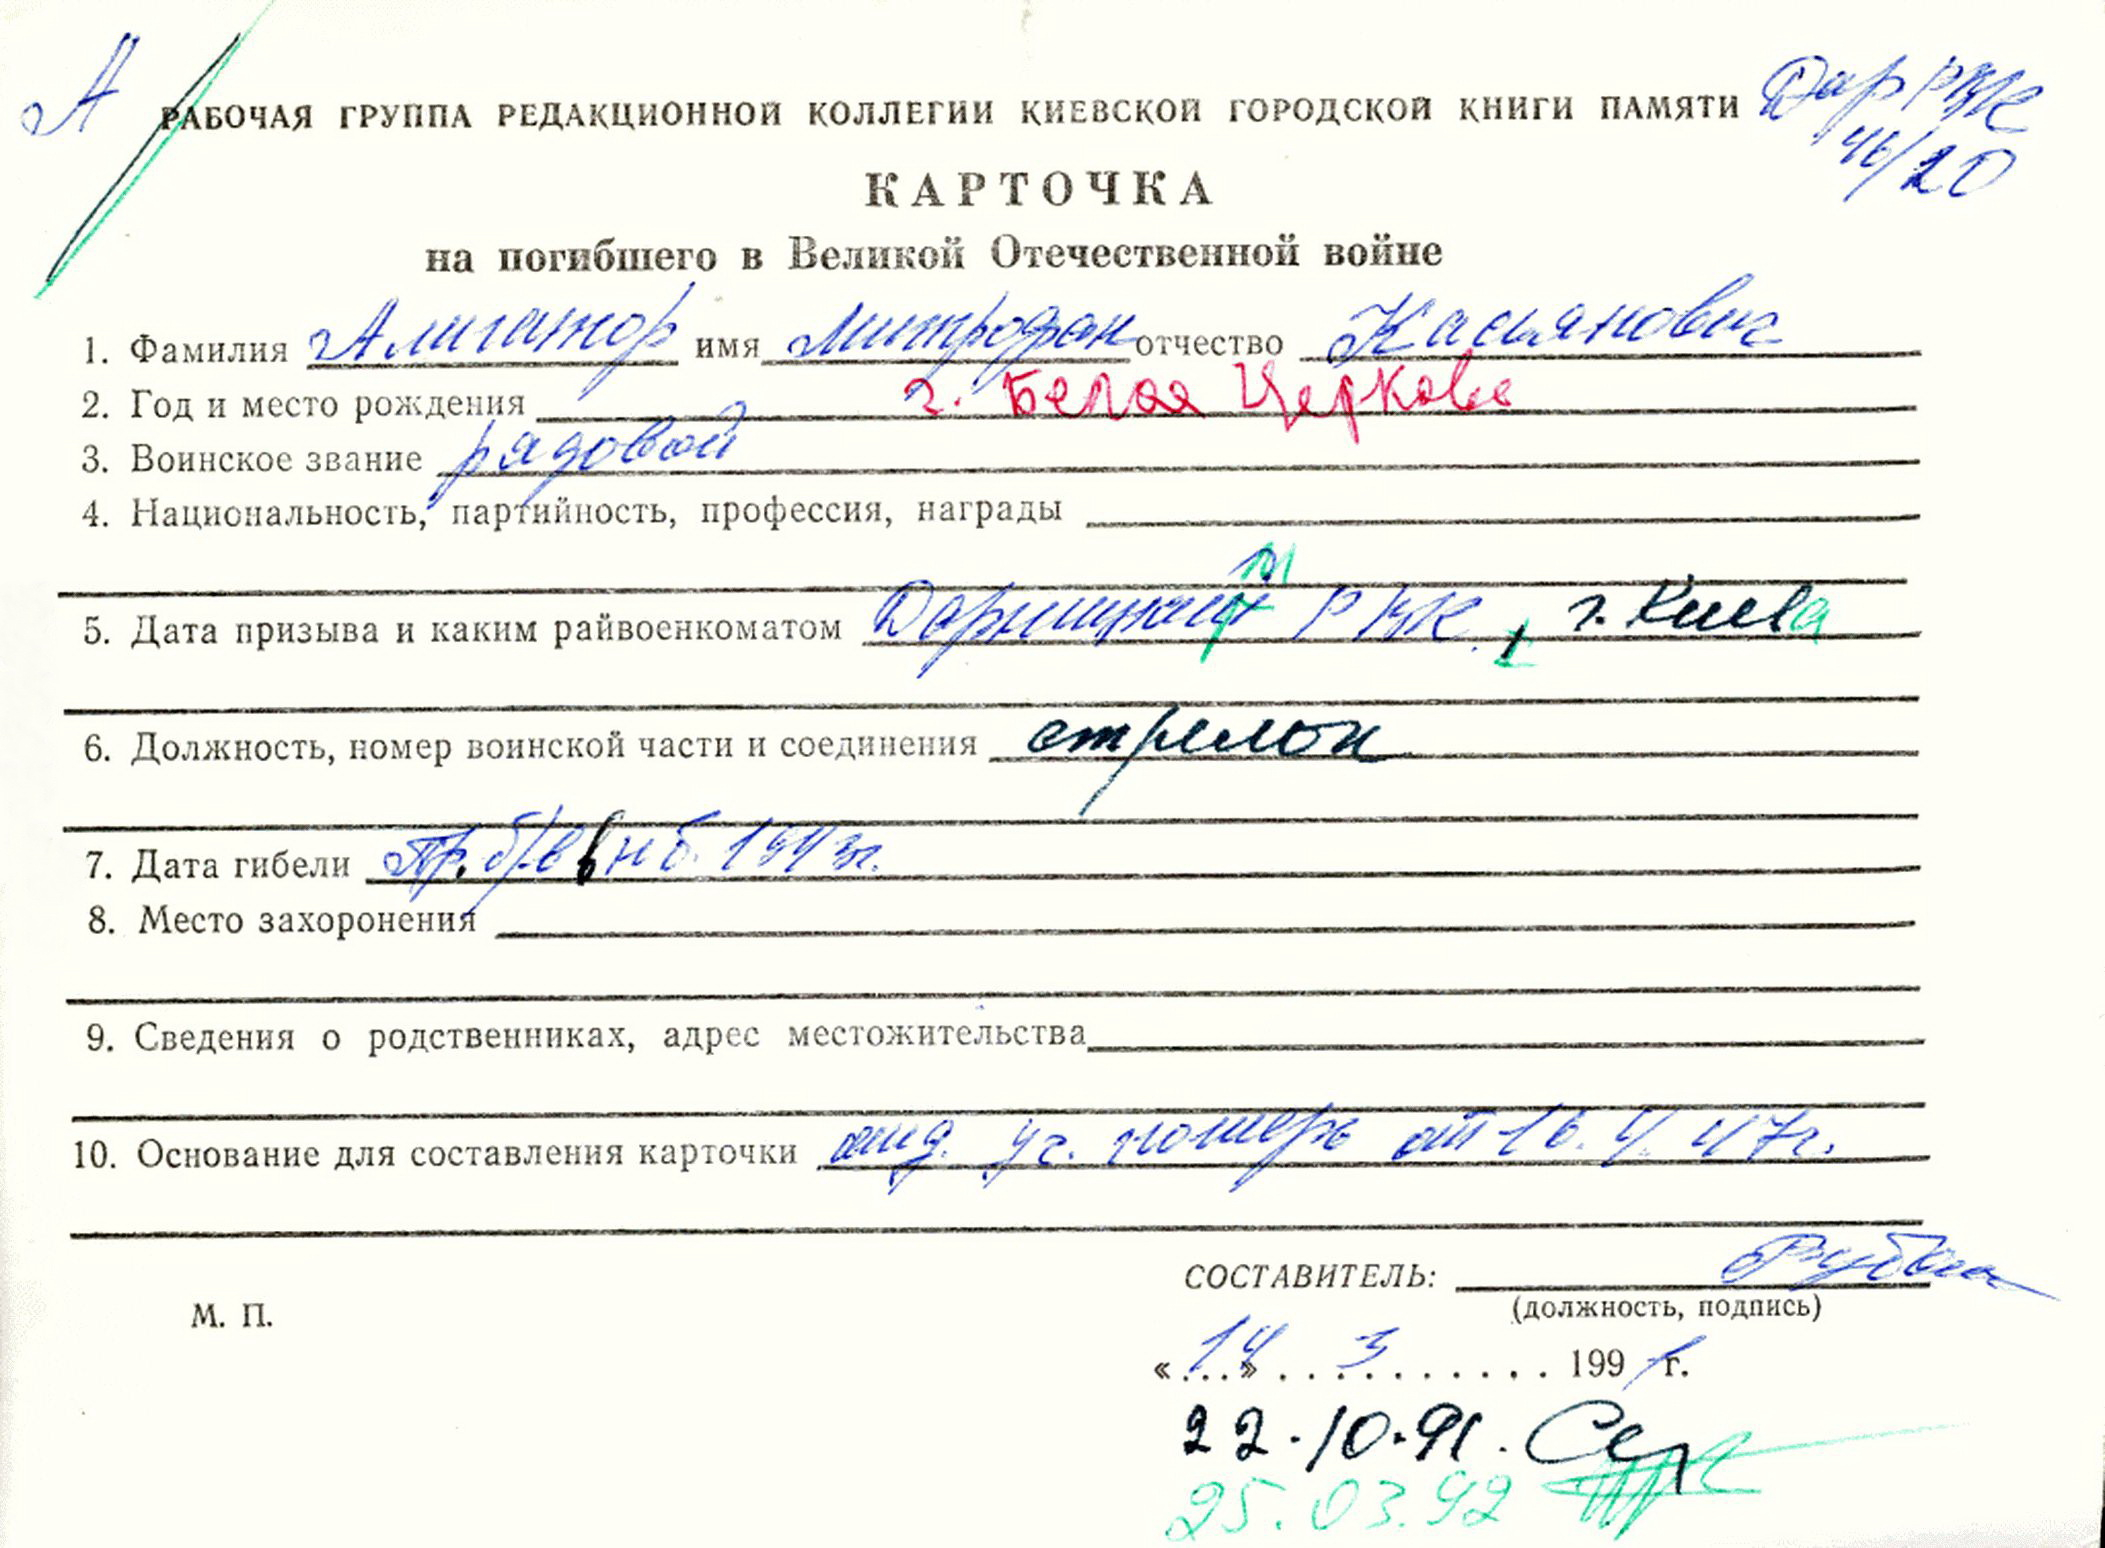 А
Дар РВК
46/20
РАБОЧАЯ ГРУППА РЕДАКЦИОННОЙ КОЛЛЕГИИ КИЕВСКОЙ ГОРОДСКОЙ КНИГИ ПАМЯТИ
КАРТОЧКА
на погибшего в Великой Отечественной войне
1. Фамилия Алигатор имя Митрофан отчество Касьянович
2. Год и место рождения г. Белая Церковь
3. Воинское звание рядовой
4. Национальность, партийность, профессия, награды
5. Дата призыва и каким райвоенкоматом Дарницким РВК, г. Киева
6. Должность, номер воинской части и соединения стрелок
7. Дата гибели пр. б/в в 1943г.
8. Место захоронения
9. Сведения о родственниках, адрес местожительства
10. Основание для составления карточки уч. потерь от 16. 47г.
СОСТАВИТЕЛЬ:
(должность, подпись)
М. П.
«14» 3 1991 г.
22.10.91.
25.03.92